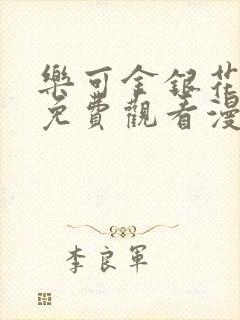 樂可金銀花
免費觀看漫
李良軍